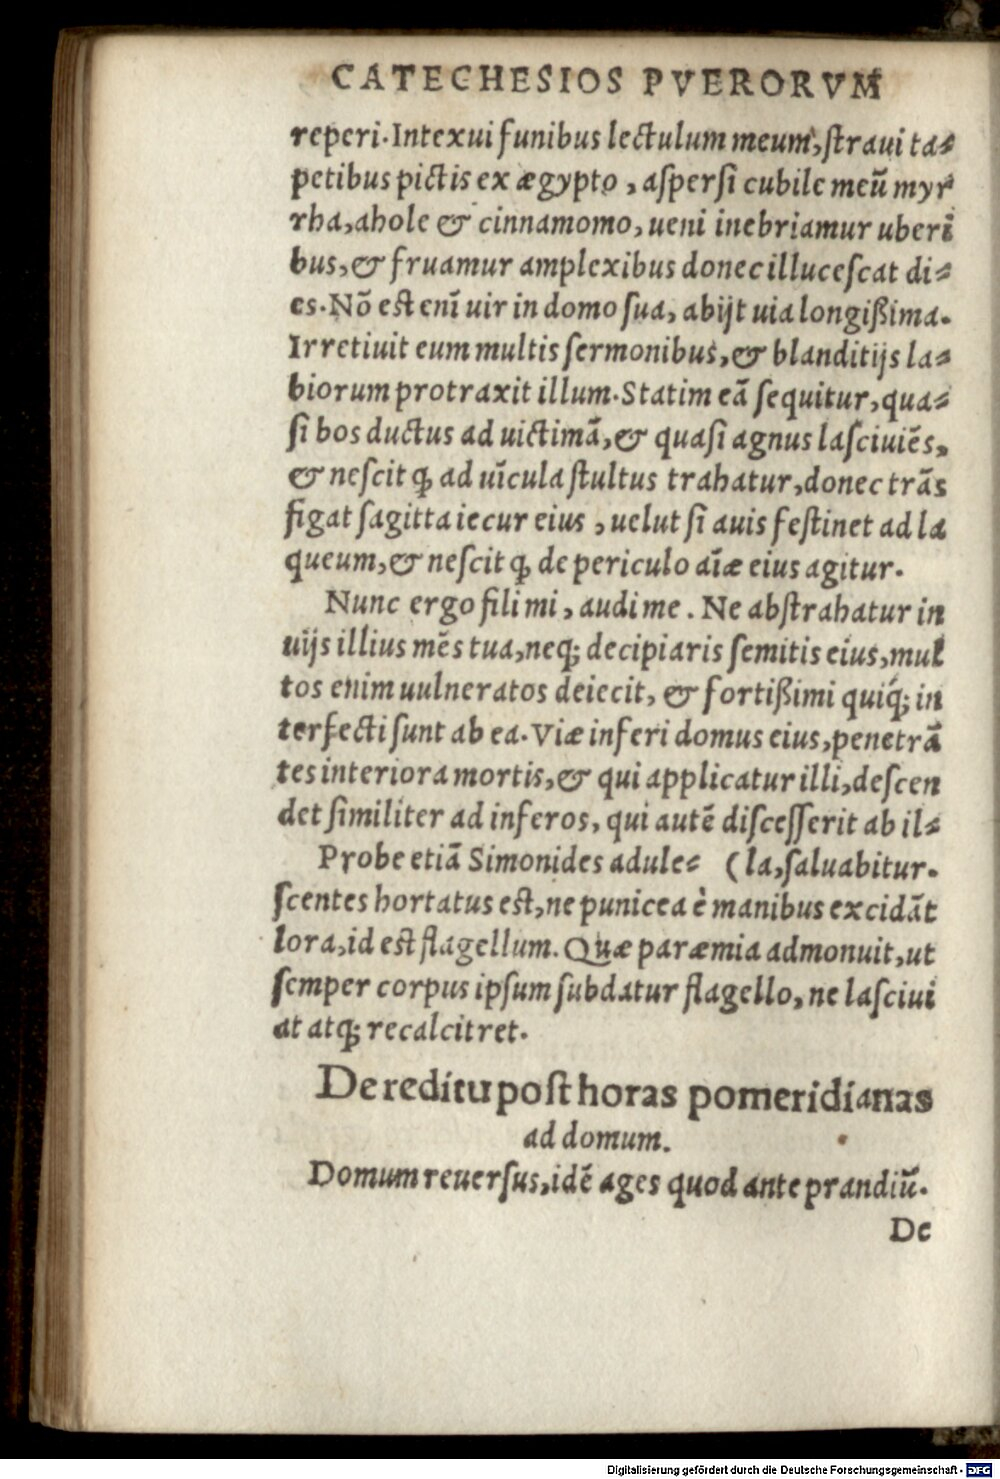 CATECHESIOS PVERORVM
reperi. Intexui funibus lectulum meum, ſtraui ta⸗
petibus pictis ex ægypto, aſperſi cubile meū myr
rha, ahole & cinnamomo, ueni inebriamur uberi
bus, & fruamur amplexibus donec illuceſcat di⸗
es. Nō est enī uir in domo ſua, abijt uia longißima.
Irretiuit eum multis ſermonibus, & blanditijs la⸗
biorum protraxit illum. Statim eā ſequitur, qua⸗
ſi bos ductus ad uictimā, & quaſi agnus laſciuiēs,
& neſcit ꝙ ad uīcula ſtultus trahatur, donec trās
figat ſagitta iecur eius, uelut ſi auis feſtinet ad la
queum, & neſcit ꝙ de periculo aīæ eius agitur.
Nunc ergo fili mi, audi me. Ne abſtrahatur in
uijs illius mēs tua, neq; decipiaris ſemitis eius, mul
tos enim uulneratos deiecit, & fortißimi quiq́; in
terfecti ſunt ab ea. Viæ inferi domus eius, penetrā
tes interiora mortis, & qui applicatur illi, deſcen
det ſimiliter ad inferos, qui autē diſceſſerit ab il⸗
Probe etiā Simonides adule⸗ (la, ſaluabitur.
ſcentes hortatus est, ne punicea è manibus excidāt
lora, id est flagellum. Quæ paræmia admonuit, ut
ſemper corpus ipſum ſubdatur flagello, ne laſciui
at atq; recalcitret.
De reditu poſt horas pomeridianas
ad domum.
Domum reuerſus, idē ages quod ante prandiū.
De
Digitalisierung gefördert durch die Deutsche Forschungsgemeinschaft - DFG